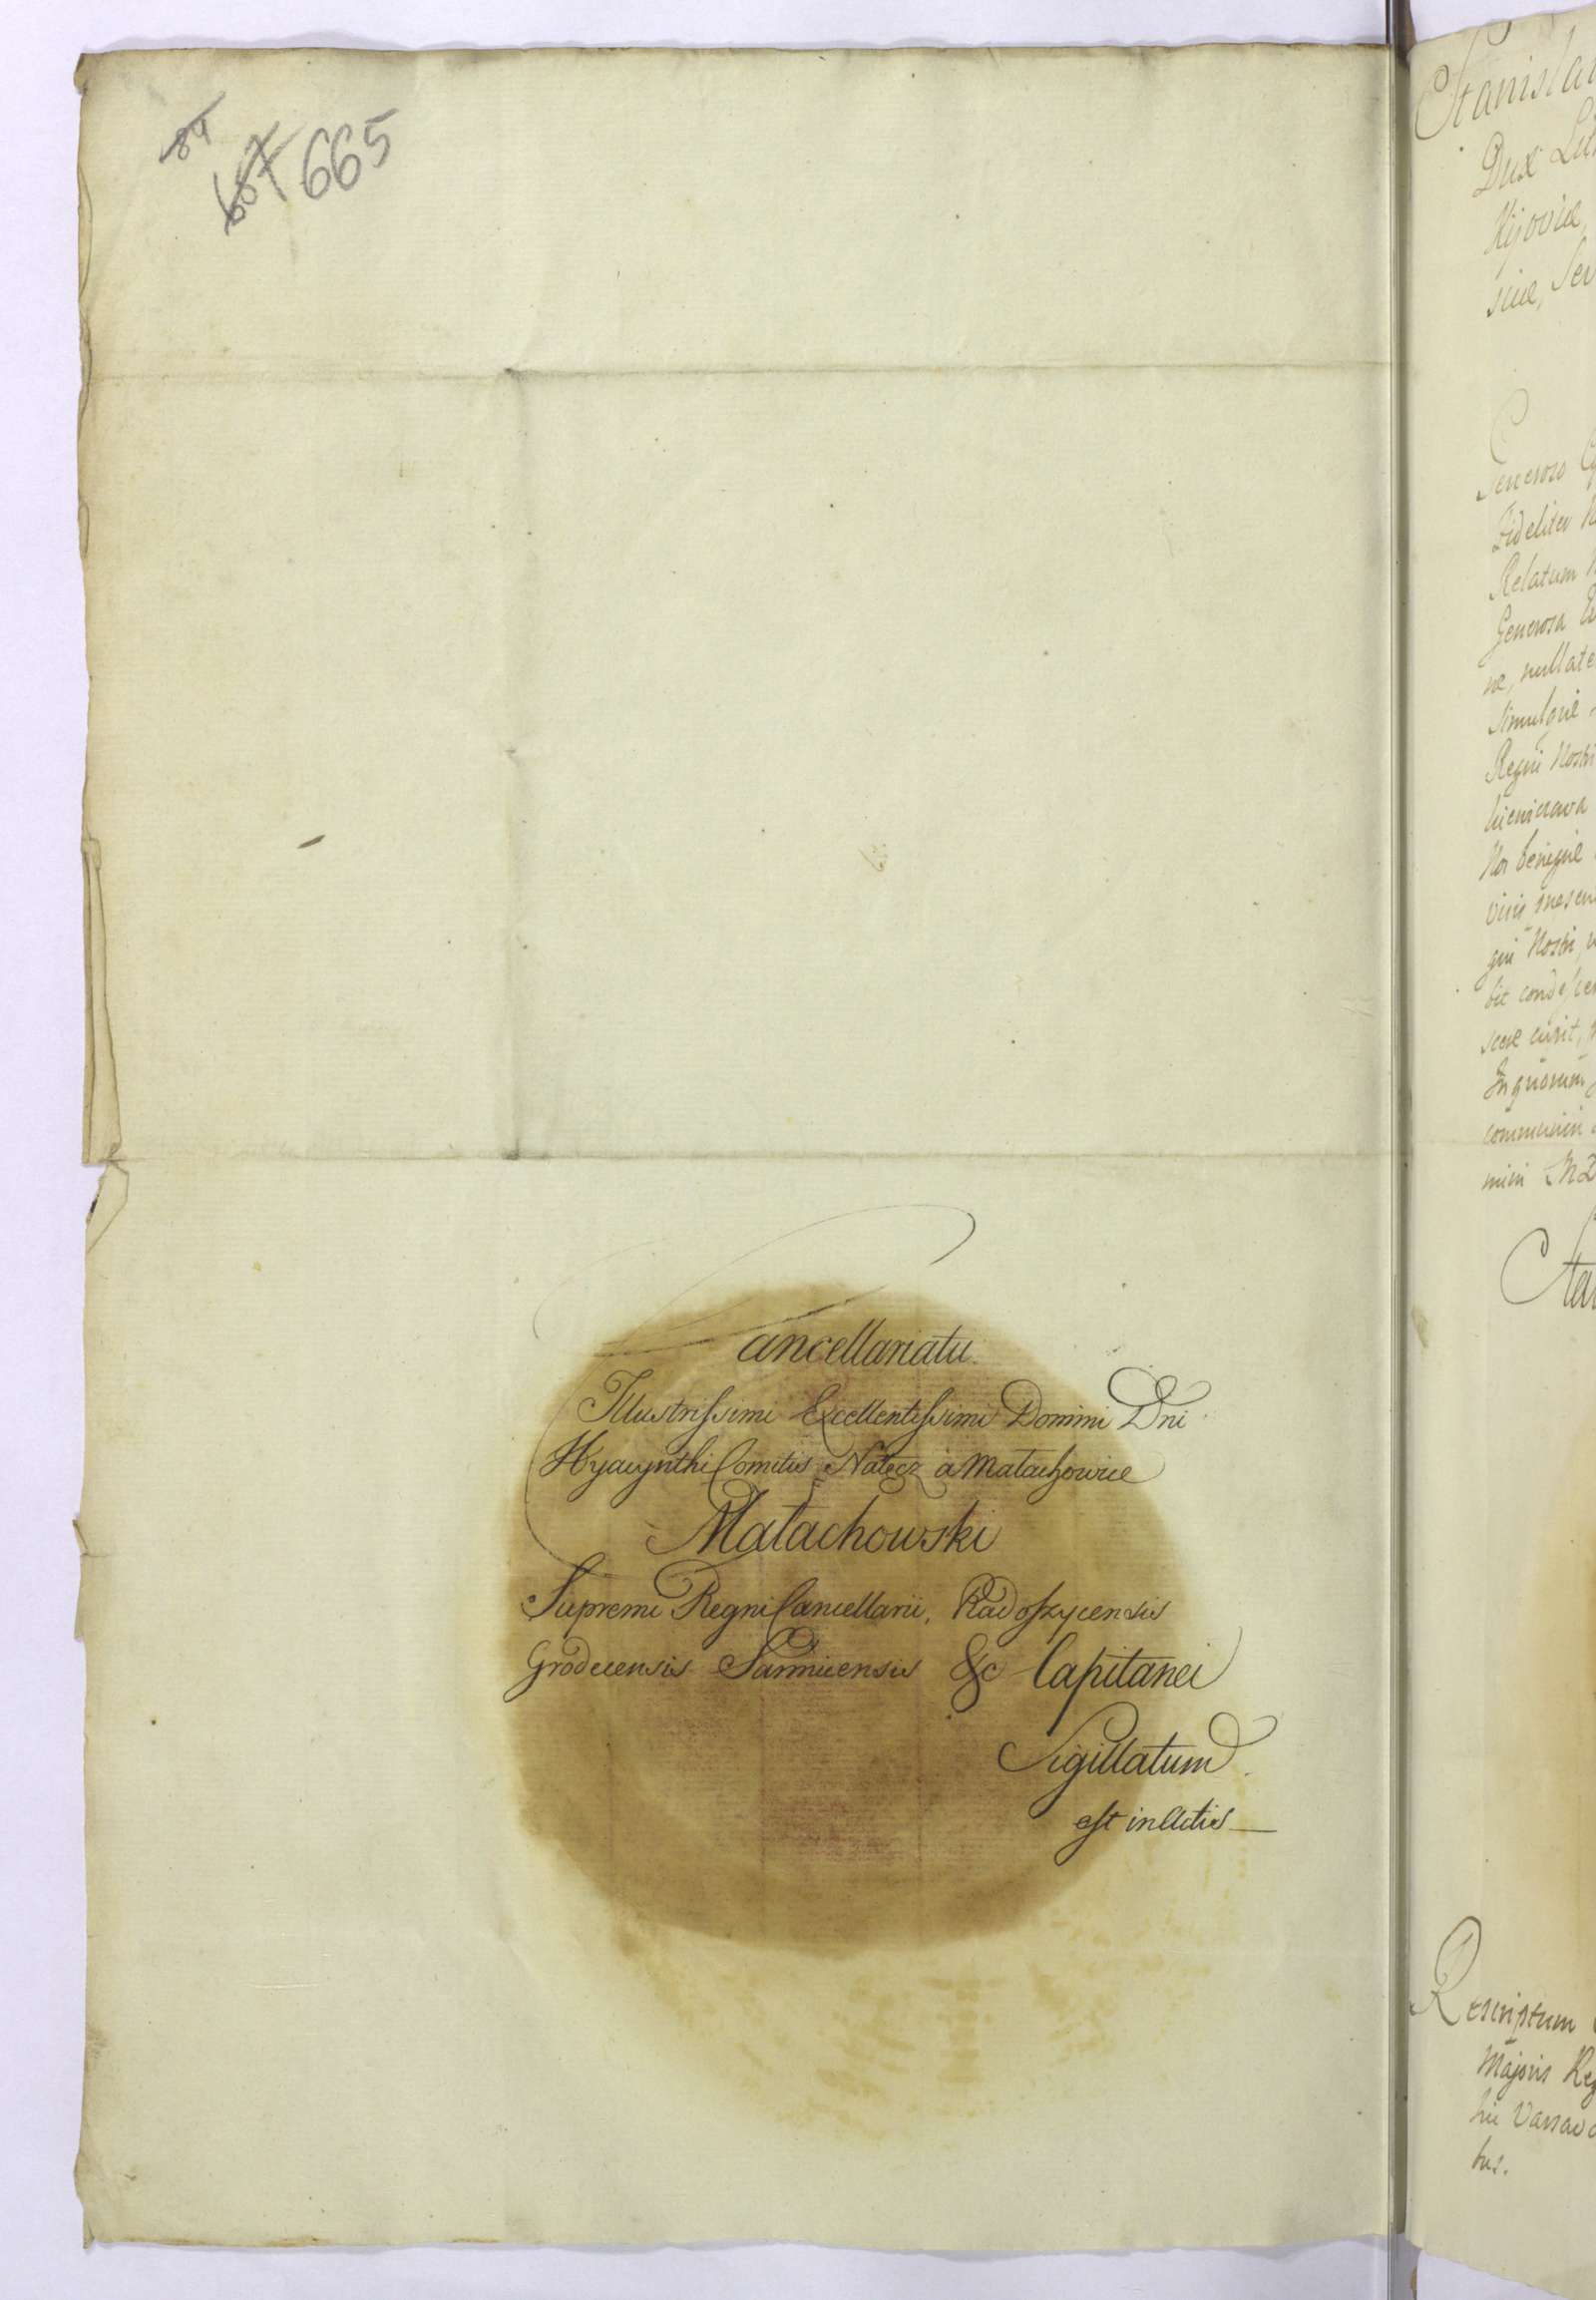 84
667 665
Cancellariatu
Illustrissimi Excellentissimi Domini Dni
Hyacynthi Comitis Nałęcz à Małachowice
Małachowski
Supremi Regni Cancellarii, Radoszycensis
Grodecensis Sannicensis &c Capitanei
Sigillatum
est in Actis
Stanislau
Dux Lit
Kijoviæ,
siæ, Se
Generoso
Fideliter
Relatum
Generosa
næ, nullate
simulque
Regni Nostri
Nos benigne
gni Nostri
sit condescen
In quorum
mini MD
Sta
Rescriptum
Majoris Reg
tus.